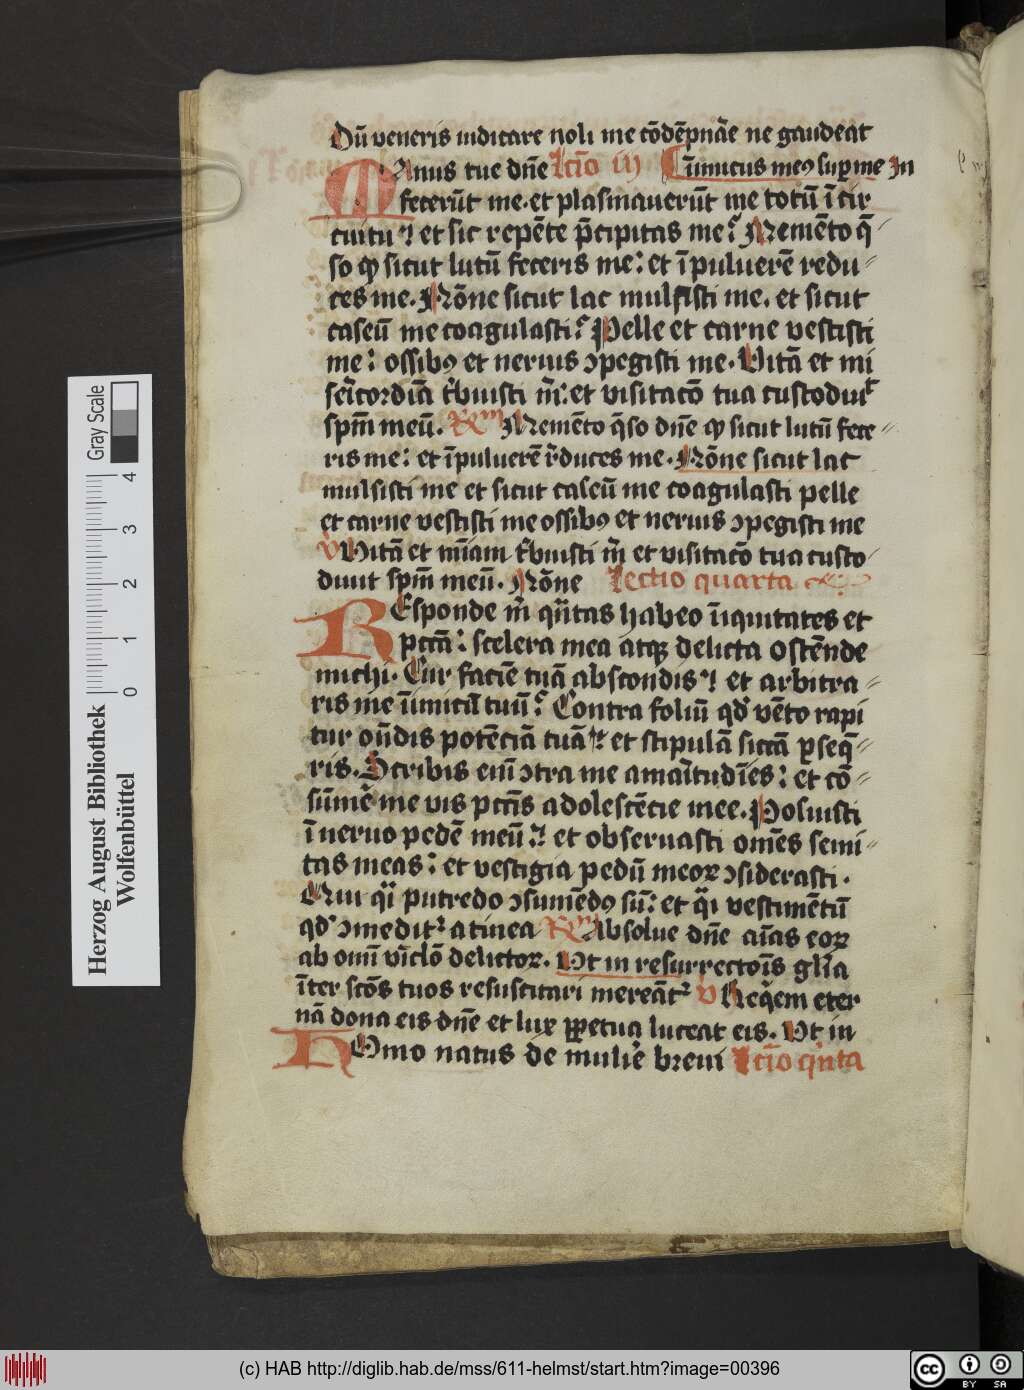 Dū veneris iudicare noli me cōdēpnāe ne gaudeat
Anus tue dn̄e lc̄io iij ūimicus meꝯ suꝑ me In
M fecerūt me. et plasmauerūt me totū ī cir
cuitu et sic repēte p̄cipitas me Memēto q̄
so qꝫ sicut lutū feceris me: et ī puluerē redu
ces me. Nōne sicut lac mulsisti me. et sicut
caseū me coagulasti Pelle et carne vestisti
me: ossibꝯ et neruis ꝯpegisti me. Vitā et mi
sēicordiā t̄buisti m̄: et visitacō tua custodiuit
spm̄ meū. Rm Memēto q̄so dn̄e qꝫ sicut lutū fece
ris me: et ī puluerē r̄duces me. Nōne sicut lac
mulsisti me et sicut caseū me coagulasti pelle
et carne vestisti me ossibꝯ et neruis ꝯpegisti me
v Vitā et m̄iam t̄buisti m̄ et visitacō tua custo
diuit spm̄ meū. Nōne lectio quarta
REsponde m̄ qn̄tas habeo īiquitates et
pcc̄ā: scelera mea atqꝫ delicta ostēnde
michi. Cur faciē tuā abscondis et arbitra
ris me ūimicū tuū Contra foliū qd̄ vēto rapi
tur on̄dis potēciā tuā et stipulā siccā ꝑseq̄
ris. Scribis eiū ꝯtra me amaītudīes: et cō
sūmē me vis pcc̄is adolescēcie mee. Posuisti
ī neruo pedē meū et obseruasti om̄es semi
tas meas: et vestigia pedū meoꝝ ꝯsiderasti.
Qui qi putredo ꝯsumēdꝯ sū: et qi vestimētū
qd̄ ꝯmedit a tinea Rm Absolue dn̄e aīas eoꝝ
ab omī vīclō delictoꝝ. Vt in resurrectōis glīa
īter scōs tuos resuscitari mereāt v Req̄em eter
nā dona eis dn̄e et lux ꝑpetua luceat eis. Vt in
HOmo natus de muliē breui lc̄io qn̄ta
Herzog August Bibliothek
Wolfenbüttel
0 1 2 3 4
Gray Scale
(c) HAB http://diglib.hab.de/mss/611-helmst/start.htm?image=00396
cc BY SA